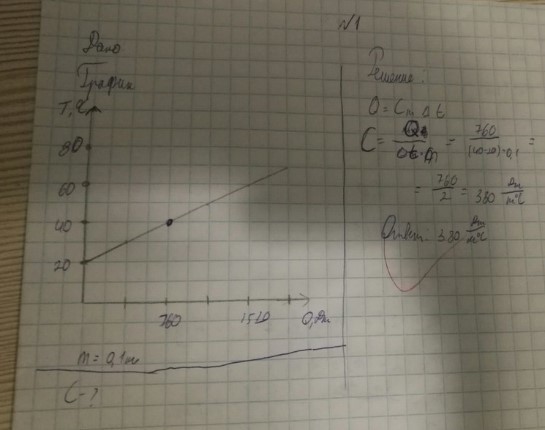 N1
Дано
График
T,°C
80
60
40
20
760
1520
Q, Дж
m = 0,1 кг
C - ?
Решение:
Q = C m Δt
C = Q / Δt·m = 760 / (40-20)·0,1 =
= 760 / 2 = 380 Дж / кг°C
Ответ: 380 Дж / кг°C